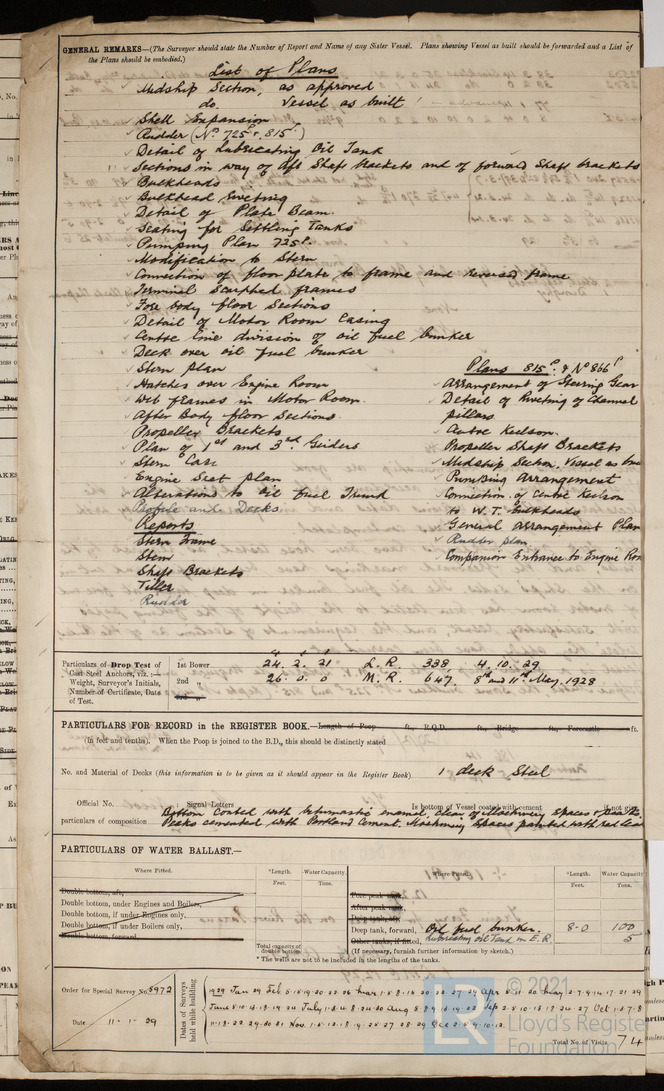 GENERAL REMARKS—(The Surveyor should state the Number of Report and Name of any Sister Vessel. Plans showing Vessel as built should be forwarded and a List of
the Plans should be embodied.)
List of Plans
Midship Section, as approved
do. Vessel as built
Shell Expansion
Rudder (No. 725P & 815P)
Detail of Lubricating Oil Tank
Sections in way of aft Shaft brackets and of forward Shaft brackets
Bulkheads
Bulkhead Riveting
Detail of Plate Beam.
Seating for Settling Tanks
Pumping Plan 725P.
Modification to Stern
Connection of floor plate to frame and reversed frame
Terminal scarphed frames
Fore body floor Sections
Detail of Motor Room Casing
Centre line division of oil fuel bunker
Deck over oil fuel bunker
Stern plan
Hatches over Engine Room
Web frames in Motor Room.
After Body floor Sections.
Propeller Brackets
Plan of 1st and 3rd Girders
Stern Case
Engine Seat plan
Alterations to oil fuel Trunk
Profile and Decks
Reports
Stern Frame
Stem
Shaft Brackets
Tiller
Rudder
Plans 815P. & No 866P
Arrangement of Steering Gear
Detail of Riveting of Channel
pillars
Centre Keelson.
Propeller Shaft Brackets
Midship Section, Vessel as
Pumping arrangement
Connection of Centre Keelson
to W.T. Bulkheads
General Arrangement Plan
Rudder plan
Companion Entrance to Engine
Particulars of Drop Test of
Cast Steel Anchors, viz.:—
Weight, Surveyor's Initials,
Number of Certificate, Date
of Test.
1st Bower 24. 2. 21 L.R. 338 4. 10. 29
2nd „ 26. 0. 0 M.R. 647 8th and 11th May, 1928
3rd „
PARTICULARS FOR RECORD in the REGISTER BOOK.—Length of Poop ft., R.Q.D. ft., Bridge ft., Forecastle ft.
(in feet and tenths). When the Poop is joined to the B.D., this should be distinctly stated
No. and Material of Decks (this information is to be given as it should appear in the Register Book). 1 deck Steel
Official No. Signal Letters Is bottom of Vessel coated with cement if not give
particulars of composition Bottom coated with bitumastic enamel, clear of Machinery spaces &
Peaks cemented with Portland Cement. Machinery Spaces painted with red lead
PARTICULARS OF WATER BALLAST.—
Where Fitted. *Length. Water Capacity. Where Fitted. *Length. Water Capacity.
Feet. Tons. Feet. Tons.
Double bottom, aft,
Double bottom, under Engines and Boilers,
Double bottom, if under Engines only,
Double bottom, if under Boilers only,
Double bottom, forward
Total capacity of
double bottom
Fore peak tank,
After peak tank,
Deep tank, aft,
Deep tank, forward, Oil fuel bunker. 8-0 100
Other tanks, if fitted, Lubricating oil Tank in E.R. 5
(If necessary, furnish further information by sketch.)
* The wells are not to be included in the lengths of the tanks.
Order for Special Survey No. 5972
Date 11-1-29
Dates of Surveys
held while building
Total No. of Visits 74
© 2021
LR
Lloyd's Register
Foundation